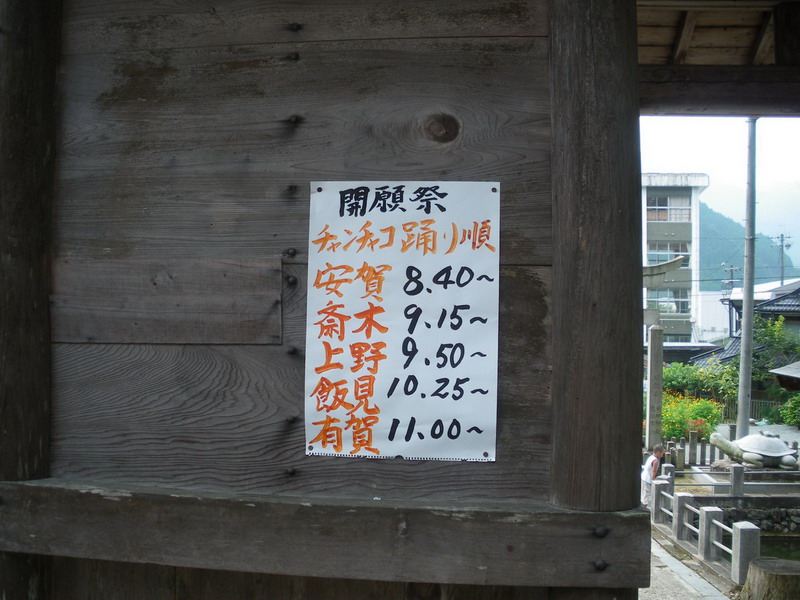 開願祭
チャンチャコ踊り順
安賀 8.40～
斎木 9.15～
上野 9.50～
飯見 10.25～
有賀 11.00～